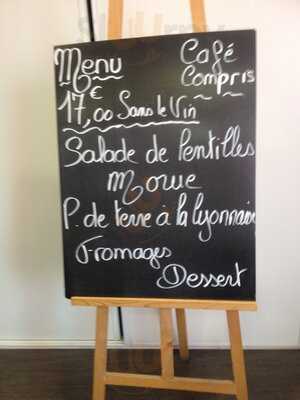 Menu
Café
Compris
17,00 € Sans le Vin
Salade de lentilles
Morue
P. de terre à la lyonnaise
Fromages
Dessert